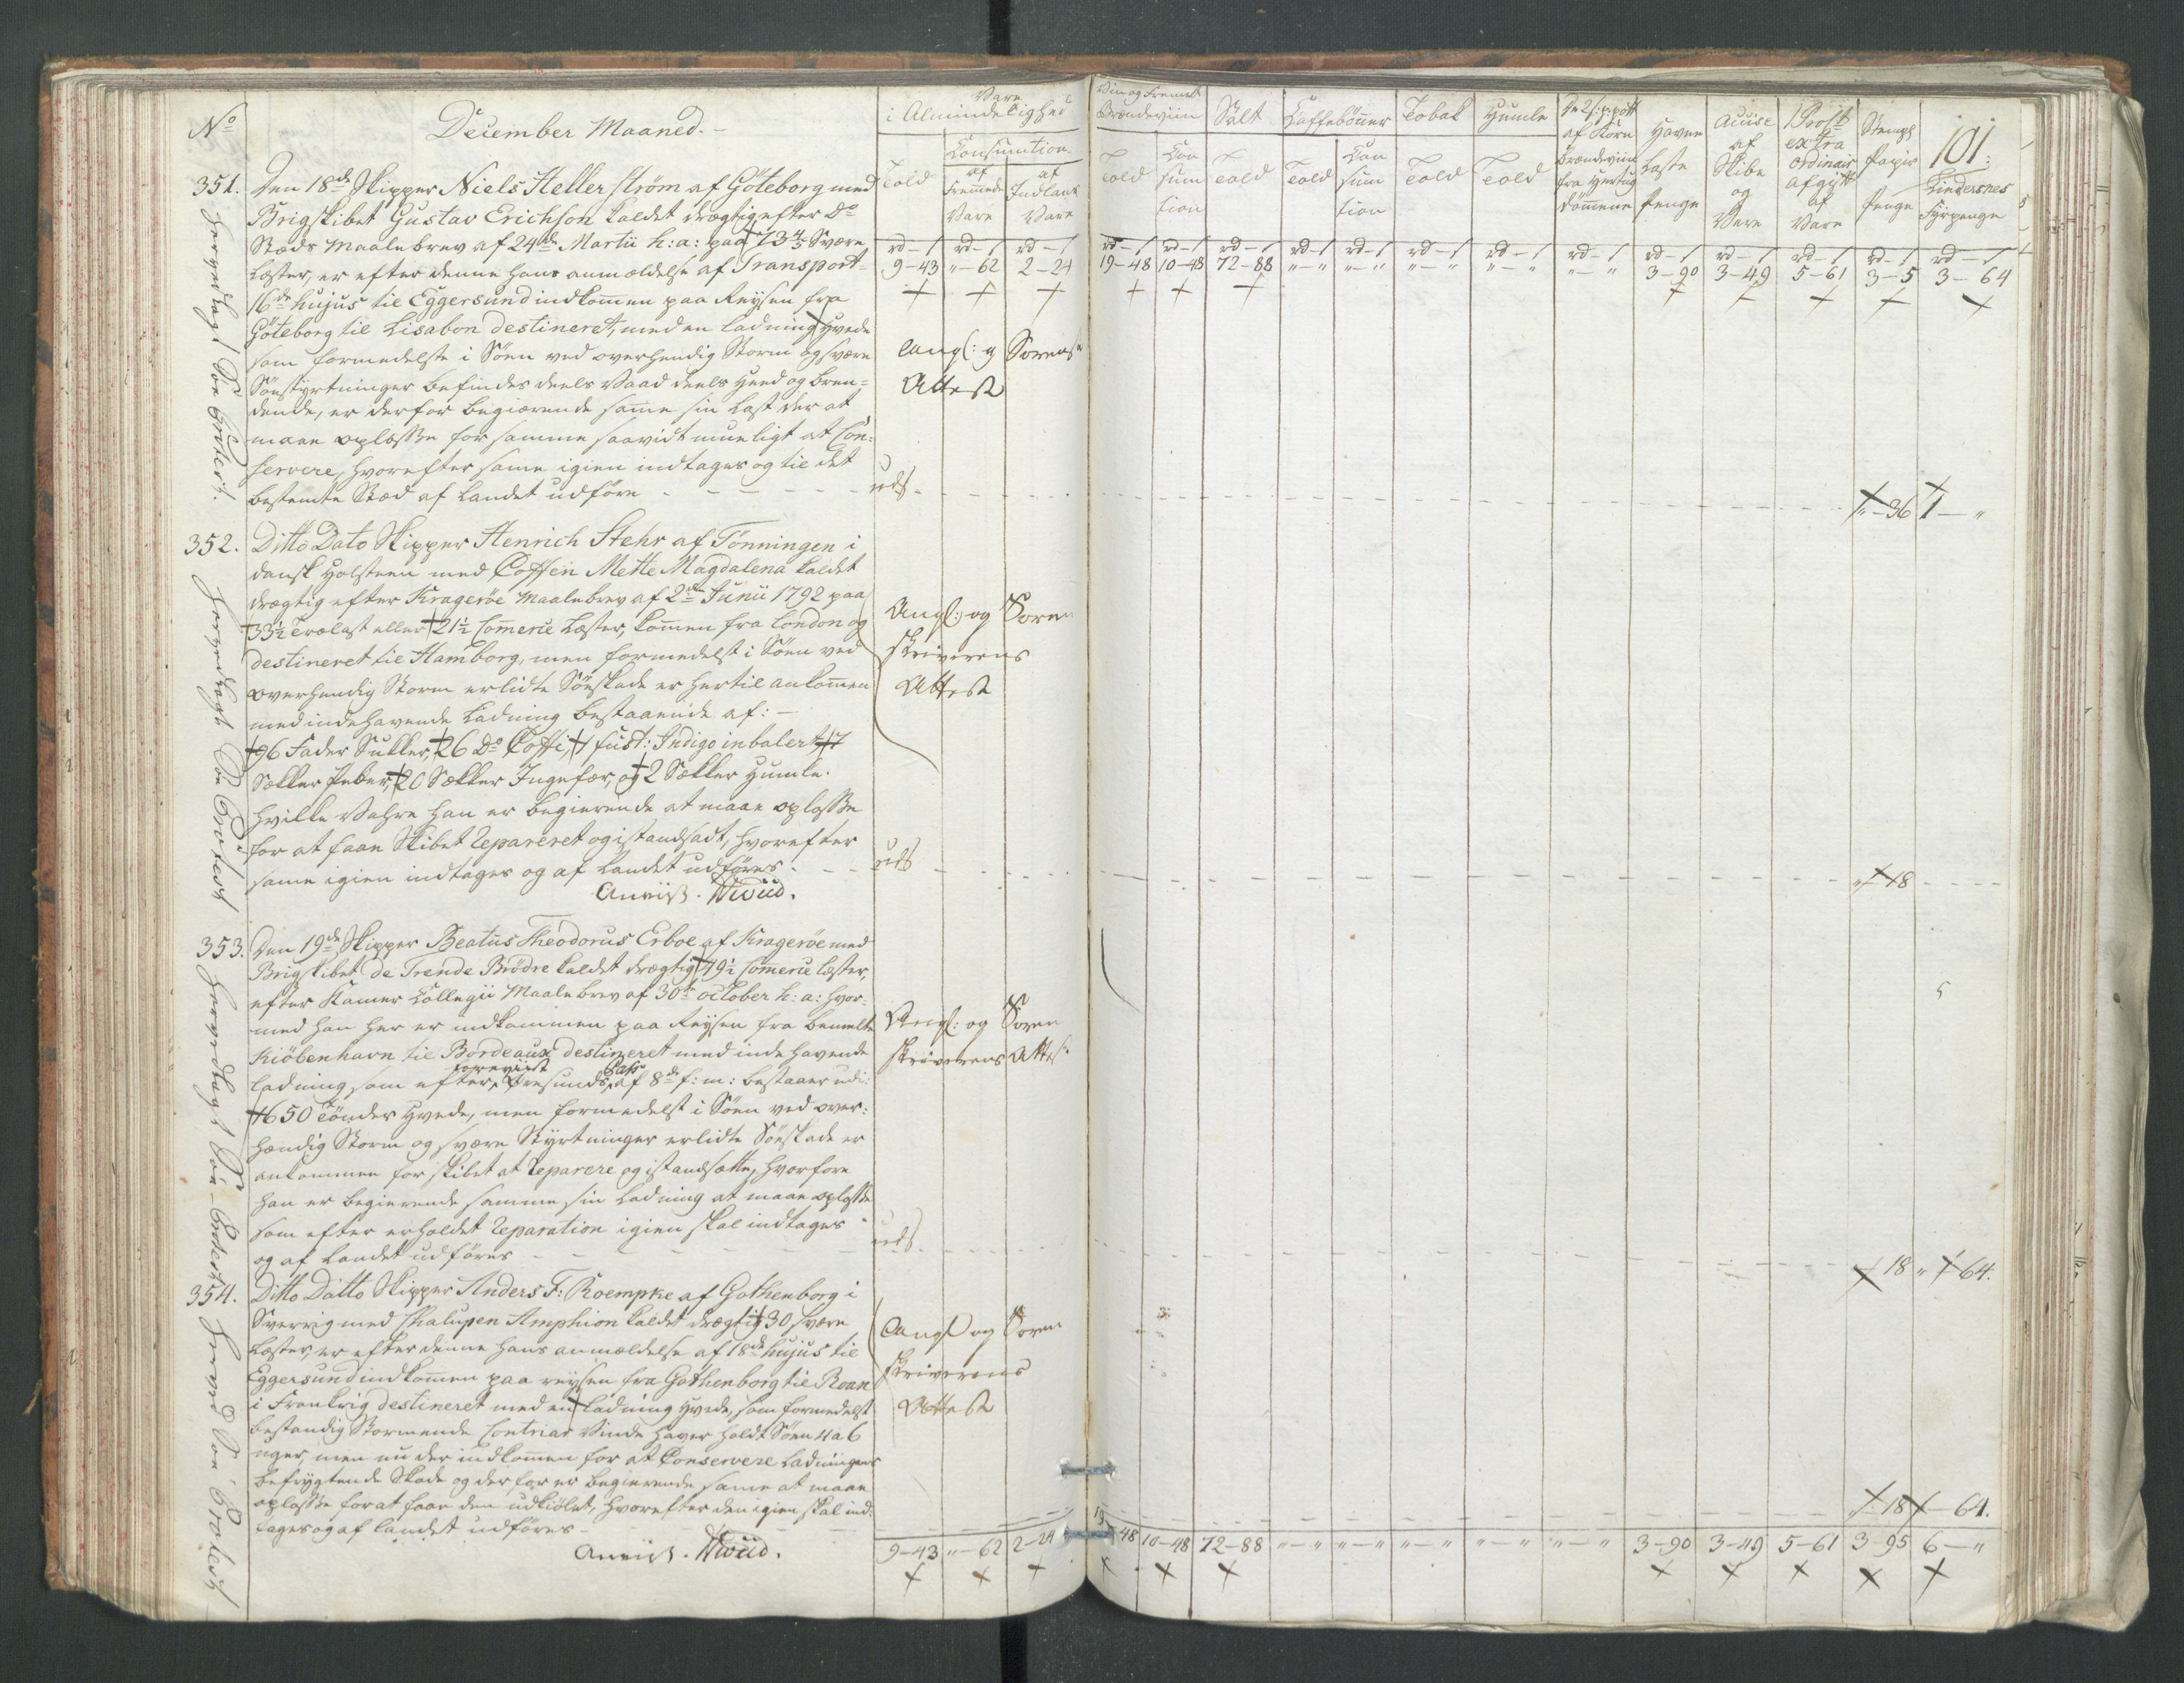 No
December Maaned.
351. Den 18de Skipper Niels Hellerström af Göteborg med
Brigskibet Gustav Erichson kaldet drægtig efter Do
Stæds Maalebrev af 24de Martii h: a: paa 73 4/5 Svære
Læster, er efter denne hans anmældelse af Transport
16de hujus til Eggersund indkommen paa Reysen fra
Göteborg til Lisabon destineret, med en ladning Hvede
som formedelste i Söen ved overhendig Storm og svære
Söestyrtninger befindes deels Vaad deels Heed og bren-
dende, er derfor begiærende samme sin Last der at
maae oplosse for samme saavidt mueligt at Con-
servere, hvorefter same igien indtages og til det
bestemte Stæd af Landet udføre - - - uds
Herved lagt Søe Protest.
Angl: og Sorens
Attest
352. Ditto Dato Skipper Henrich Stehr af Tönningen i
dansk Holsteen med Coffen Mette Magdalena kaldet
drægtig efter Kragerøe Maalebrev af 2de Junii 1792 paa
33½ Trælæst eller 21½ Commerce Læster, kommen fra London og
destineret til Hamborg, men formedelst i Söen ved
overhendig Storm erlidte Söeskade er hertil ankommen
med indehavende Ladning bestaaende af: -
96 Fader Sukker, 26 Do Coffi, 1 fust: Indigo inbalert 7
Sækker Peber, 20 Sækker Ingefær, og 2 Sækker Humle.
hvilke Vahre han er begierende at maae oplosse
for at faae Skibet Repareret og istandsadt, hvorefter
same igien indtages og af Landet udføres - - uds
Anviist. Wiid.
Herved lagt Søe Protest
Angl: og Soren
skriverens
Attest
353. Den 19de Skipper Beatus Theodorus Erboe af Kragerøe med
Brigskibet de Trende Brödre kaldet drægtig 49½ Commerce læster,
efter Kamer Collegii Maalebrev af 30te october h: a: hvor-
med han her er indkommen paa Reysen fra bemelte
Kiöbenhavn til Bordeaux destineret med indehavende
ladning som efter foreviist Øresunds Pass af 8de f: m: bestaaer udi:
1650 Tönder Hvede, men formedelst i Söen ved over-
hændig Storm og svære Styrtninger erlidte Söeskade er
ankommen for skibet at Reparere og istandsætte, hvorfore
han er begierende samme sin Ladning at maae oplosse
som efter erholdet Reparation igien skal indtages
og af Landet udføres - - - uds
Herved lagt Søe-Protest
Angl: og Soren
skriverens Attest
354. Ditto Datto Skipper Anders F: Roempke af Gothenborg i
Sverrig med Chalupen Amphion kaldet drægtig 30 svære
Læster, er efter denne hans anmældelse af 18de hujus til
Eggersund indkommen paa reysen fra Gothenborg til Roan
i Frankrig destineret med en Ladning Hvede, som formedelst
bestandig Stormende Contriar Vinde haver holdt Söen 4 a 6
uger, men nu der indkommen for at Conservere Ladningens
befrygtende Skade og derfor er begierende same at maae
oplosse for at faae den udkiølet, hvorefter den igien skal ind-
tages og af Landet udføres -
Anviist. Wiid.
Herved Søe Protest
Angl og Soren
skriverens
Attest
Vare
i Almindelighed
Told
Consumtion
af Fremmede Vare
af Indlansk Vare
rd - s rd - s rd - s
9-43 "-62 2-24
Viin og Fremmet
Brændeviin
Told
Con sum tion
Salt
Told
Caffebönner
Told
Con sum tion
Tobak
Told
Humle
Told
De 2 s: p: pott
af Korn
brændeviin
fra Hertug
dömmene
Havne
Laste
Penge
Accise
af
Skibe
og
Vare
1 Proct
extra
ordinair
Afgift
af
Vare
Stempl
Papir
Penge
101:
Lindersnes
Fyrpenge
19-48 10-48 72-88 "-" "-" "-" "-" "-" 3-90 3-49 5-61 3-5 3-64
"-36 1-"
"-18
18 "-64.
18 "-64.
9-43 "-62 2-24 19-48 10-48 72-88 "-" "-" "-" "-" "-" 3-90 3-49 5-61 3-95 6-"